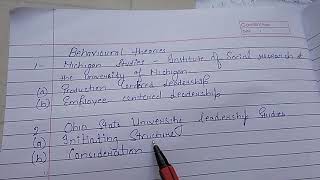 Behavioural theories
1- Michigan Studies - Institute of Social research at
the University of Michigan
(a) Production Centred leadership
(b) Employee centered leadership
2. Ohio State University leadership Studies
(a) Initiating Structure
(b) Consideration